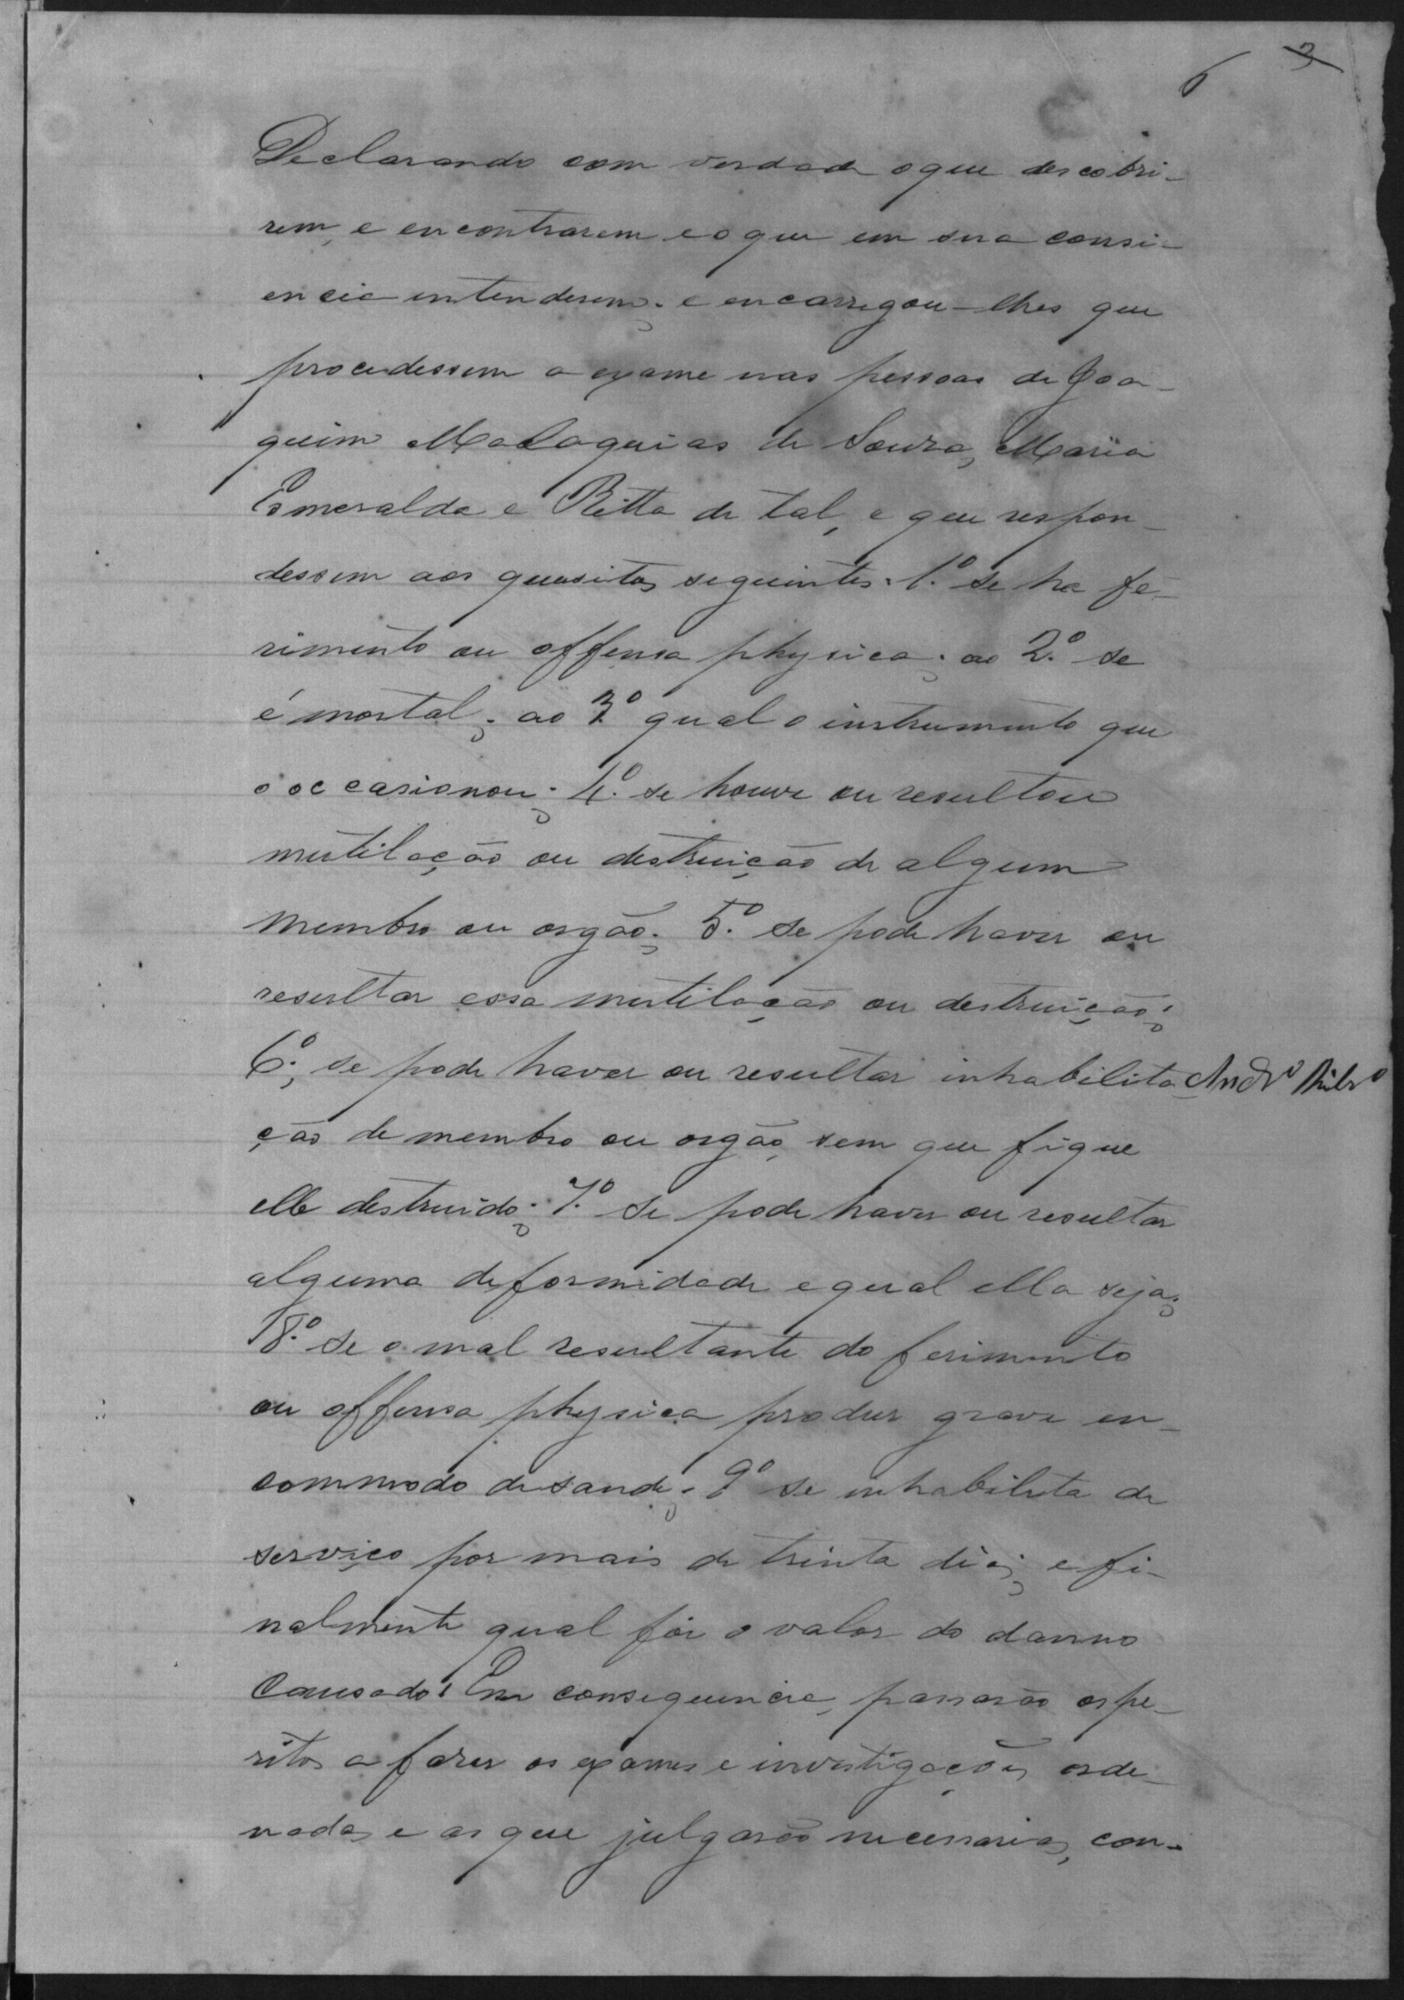 6 3
Declarando com verdade o que descobri-
rem, e encontrarem e o que em sua consi-
encia entenderem; e encarregou-lhes que
procedessem a exame nas pessoas de Joa-
quim Malaquias de Souza, Maria
Esmeralda e Ritta de tal, e que respon-
dessem aos quesitos seguintes: 1.º se ha fe-
rimento ou offensa physica; ao 2.º se
é mortal; ao 3.º qual o instrumento que
o occasionou; 4.º se houve ou resultou
mutilação ou destruição de algum
membro ou orgão; 5.º se pode haver ou
resultar essa mutilação ou destruição;
6.º, se pode haver ou resultar inhabilita-
ção de membro ou orgão, sem que fique
elle destruido; 7.º se pode haver ou resultar
alguma deformidade e qual ella seja;
8.º se o mal resultante do ferimento
ou offensa physica produs grave en-
commodo de saude; 9.º se inhabilita de
serviço por mais de trinta dias; e fi-
nalmente qual foi o valor do damno
causado? Em consequencia, passarão os pe-
ritos a fazer os exames e investigações orde-
nadas e as que julgarão necessarias, con-